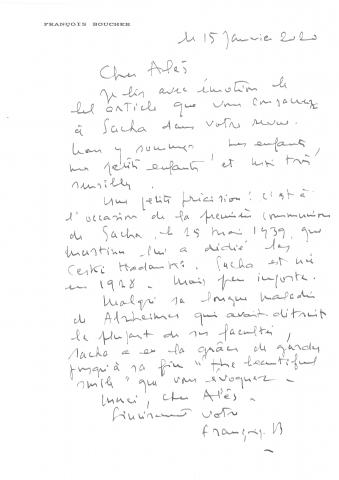 FRANÇOIS BOUCHER
le 15 Janvier 2020
Cher Aleš
Je lis avec émotion le
bel article que vous consacrez
à Sacha dans votre revue.
Nous y sommes mes enfants,
mes petits enfants et moi très
sensibles.
Une petite précision : c'est à
l'occasion de la première communion
de Sacha, le 25 mai 1939, que
Martinu lui a dédié les
. Sacha est né
en 1928 - Mais peu importe.
Malgré sa longue maladie
de Alzheimer qui avait détruit
la plupart de ses facultés,
Sacha a eu la grâce de garder
jusqu'à sa fin "the beautiful
smile" que vous évoquez -
Merci, cher Aleš.
Sincèrement votre
François B